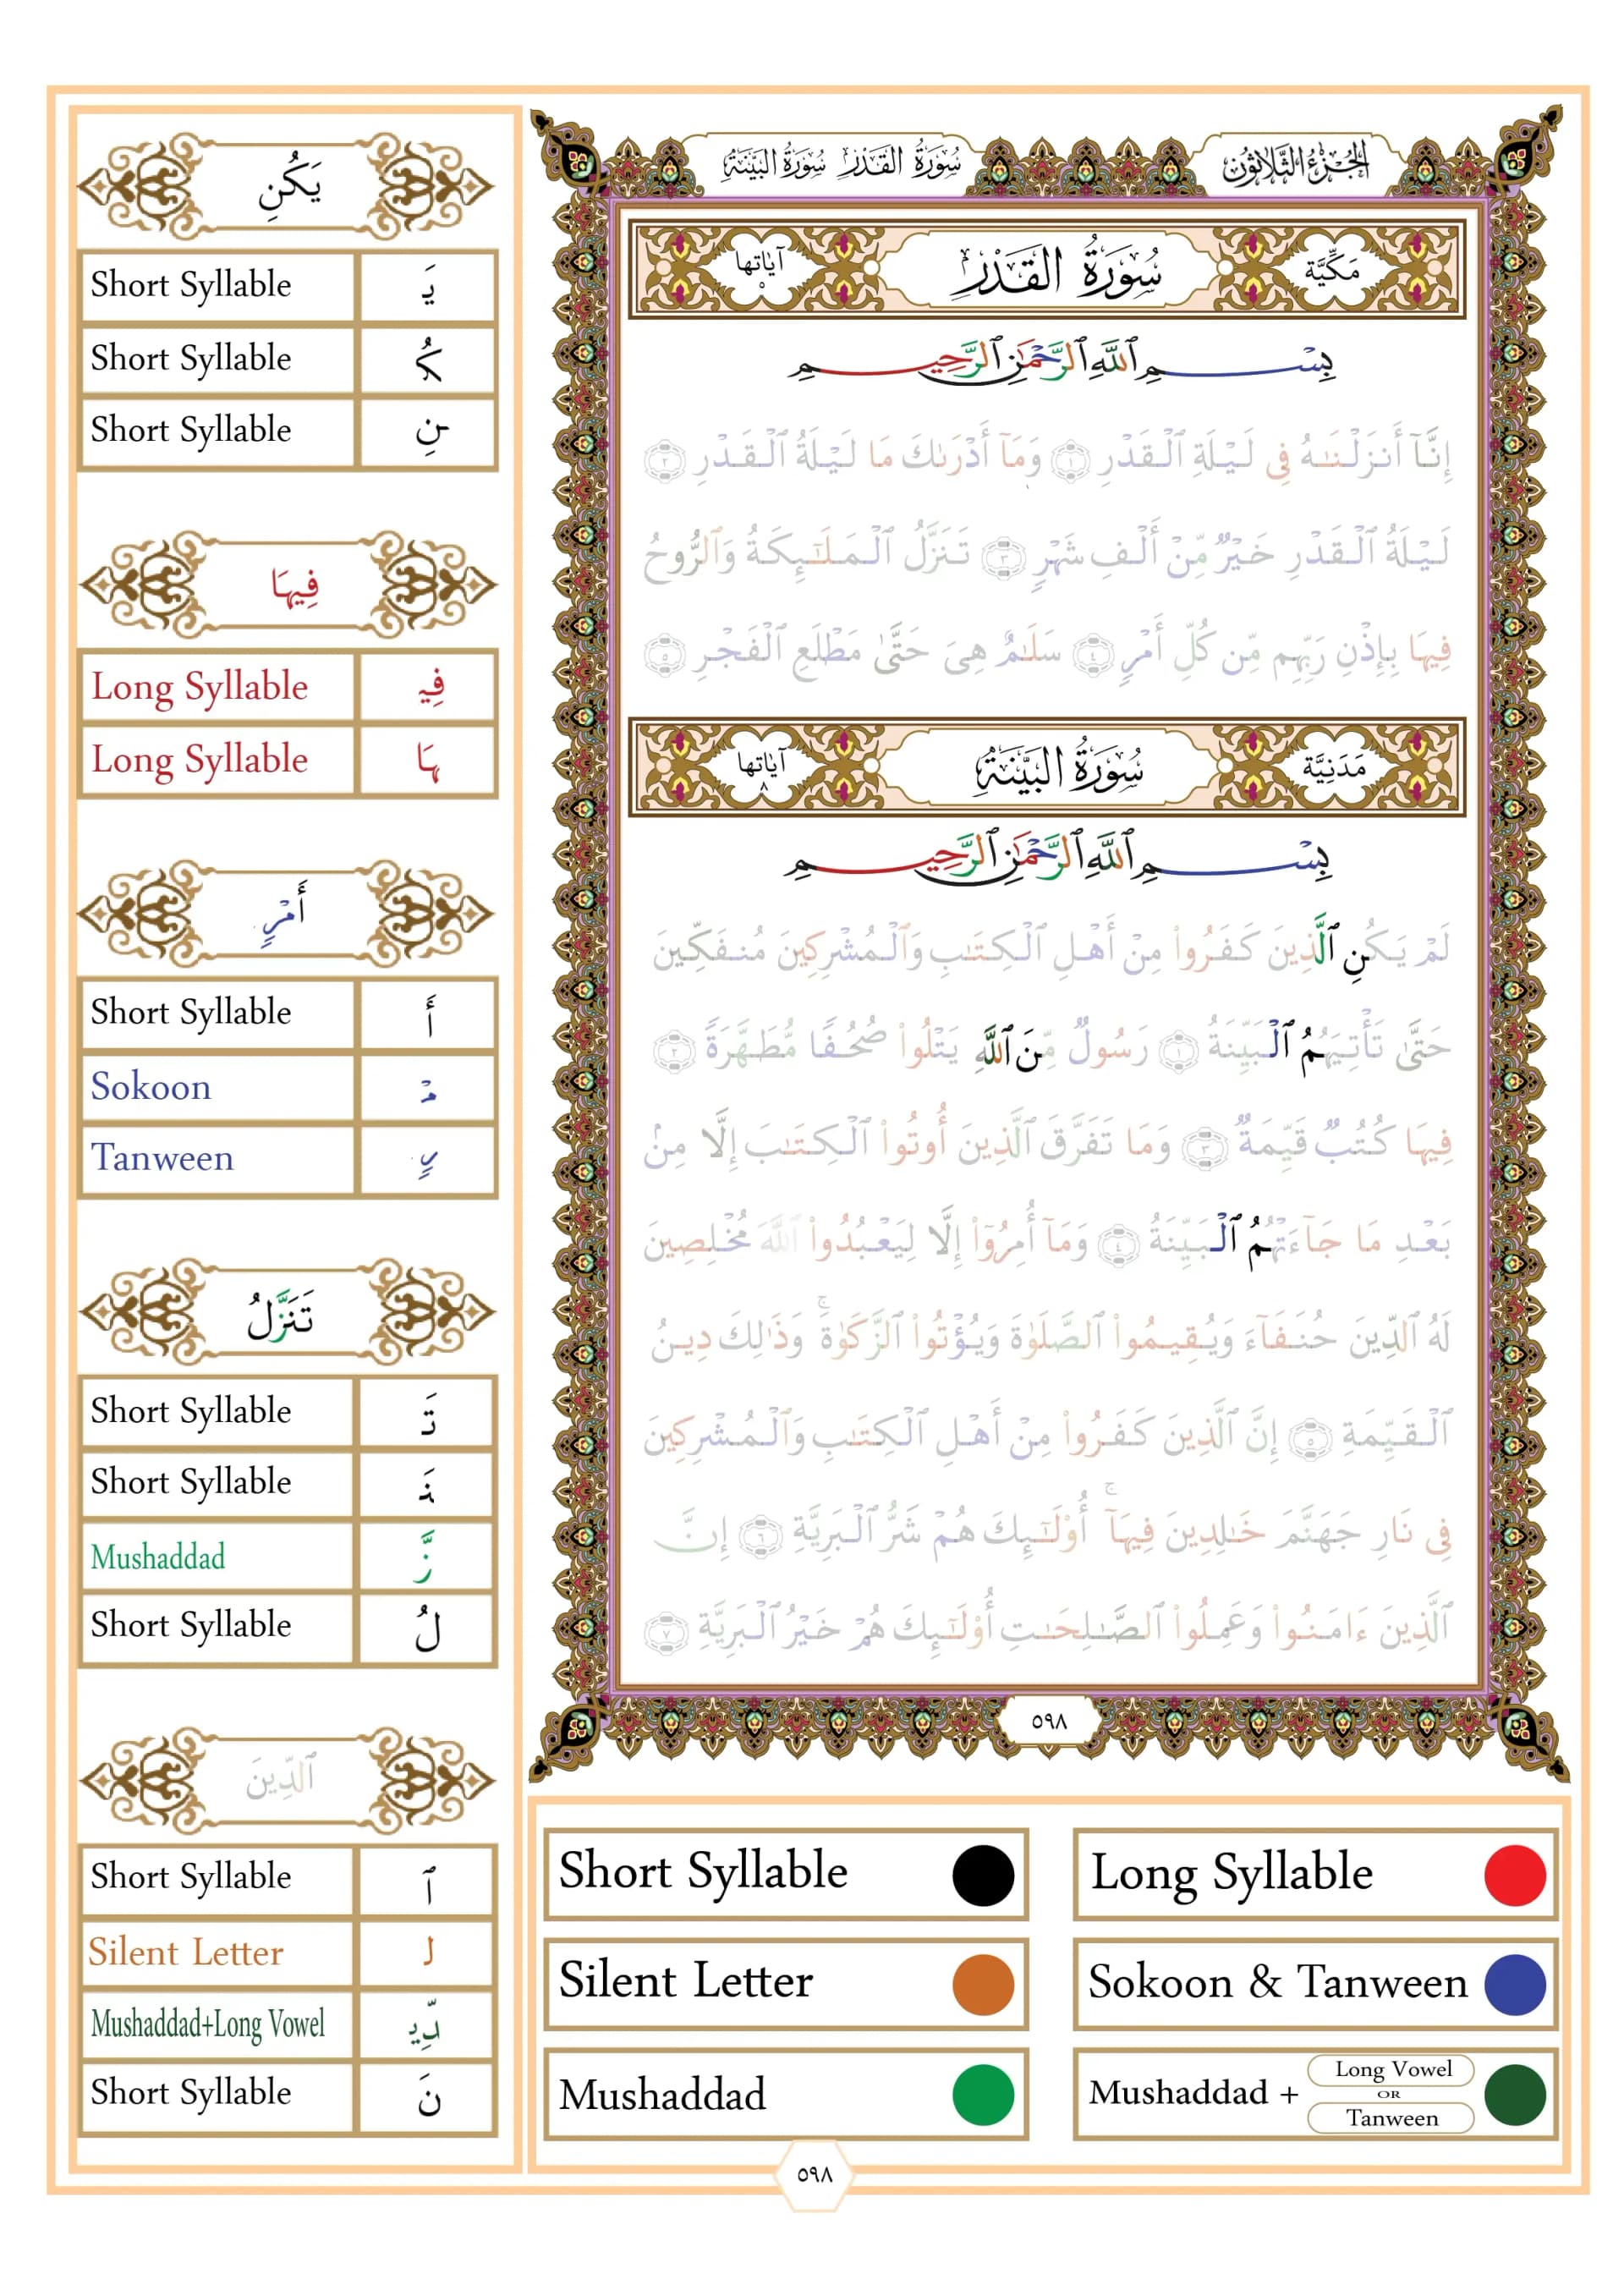 سُورَةُ القَدْرِ سُورَةُ البَيِّنَةِ
الجُزْءُ الثَّلَاثُونَ
مَكِّيَّة
سُورَةُ القَدْرِ
آيَاتها ٥
بِسْمِ ٱللَّهِ ٱلرَّحْمَٰنِ ٱلرَّحِيمِ
إِنَّآ أَنزَلْنَٰهُ فِى لَيْلَةِ ٱلْقَدْرِ ١ وَمَآ أَدْرَىٰكَ مَا لَيْلَةُ ٱلْقَدْرِ ٢
لَيْلَةُ ٱلْقَدْرِ خَيْرٌ مِّنْ أَلْفِ شَهْرٍ ٣ تَنَزَّلُ ٱلْمَلَٰٓئِكَةُ وَٱلرُّوحُ
فِيهَا بِإِذْنِ رَبِّهِم مِّن كُلِّ أَمْرٍ ٤ سَلَٰمٌ هِىَ حَتَّىٰ مَطْلَعِ ٱلْفَجْرِ ٥
مَدَنِيَّة
سُورَةُ البَيِّنَةِ
آيَاتها ٨
بِسْمِ ٱللَّهِ ٱلرَّحْمَٰنِ ٱلرَّحِيمِ
لَمْ يَكُنِ ٱلَّذِينَ كَفَرُوا۟ مِنْ أَهْلِ ٱلْكِتَٰبِ وَٱلْمُشْرِكِينَ مُنفَكِّينَ
حَتَّىٰ تَأْتِيَهُمُ ٱلْبَيِّنَةُ ١ رَسُولٌ مِّنَ ٱللَّهِ يَتْلُوا۟ صُحُفًا مُّطَهَّرَةً ٢
فِيهَا كُتُبٌ قَيِّمَةٌ ٣ وَمَا تَفَرَّقَ ٱلَّذِينَ أُوتُوا۟ ٱلْكِتَٰبَ إِلَّا مِنۢ
بَعْدِ مَا جَآءَتْهُمُ ٱلْبَيِّنَةُ ٤ وَمَآ أُمِرُوٓا۟ إِلَّا لِيَعْبُدُوا۟ ٱللَّهَ مُخْلِصِينَ
لَهُ ٱلدِّينَ حُنَفَآءَ وَيُقِيمُوا۟ ٱلصَّلَوٰةَ وَيُؤْتُوا۟ ٱلزَّكَوٰةَ ۚ وَذَٰلِكَ دِينُ
ٱلْقَيِّمَةِ ٥ إِنَّ ٱلَّذِينَ كَفَرُوا۟ مِنْ أَهْلِ ٱلْكِتَٰبِ وَٱلْمُشْرِكِينَ
فِى نَارِ جَهَنَّمَ خَٰلِدِينَ فِيهَآ ۚ أُو۟لَٰٓئِكَ هُمْ شَرُّ ٱلْبَرِيَّةِ ٦ إِنَّ
ٱلَّذِينَ ءَامَنُوا۟ وَعَمِلُوا۟ ٱلصَّٰلِحَٰتِ أُو۟لَٰٓئِكَ هُمْ خَيْرُ ٱلْبَرِيَّةِ ٧
٥٩٨
يَكُنِ
Short Syllable يَـ
Short Syllable كُـ
Short Syllable ـنِ
فِيهَا
Long Syllable فِيـ
Long Syllable ـهَا
أَمْرٍ
Short Syllable أَ
Sokoon مْـ
Tanween ـرٍ
تَنَزَّلُ
Short Syllable تَـ
Short Syllable ـنَـ
Mushaddad ـزَّ
Short Syllable لُ
ٱلدِّينَ
Short Syllable ٱ
Silent Letter لـ
Mushaddad+Long Vowel ـدِّيـ
Short Syllable نَ
Short Syllable
Long Syllable
Silent Letter
Sokoon & Tanween
Mushaddad
Mushaddad + Long Vowel OR Tanween
٥٩٨